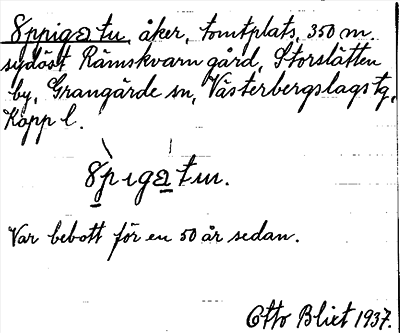 8ppigatu, åker, tomtplats, 350 m
sydöst Rämskvarn gård, Storslätten
by, Grangärde sn, Västerbergslags tg,
Kopp l.
8pıgatɯn.
Var bebott för en 50 år sedan.
Otto Blixt 1937.